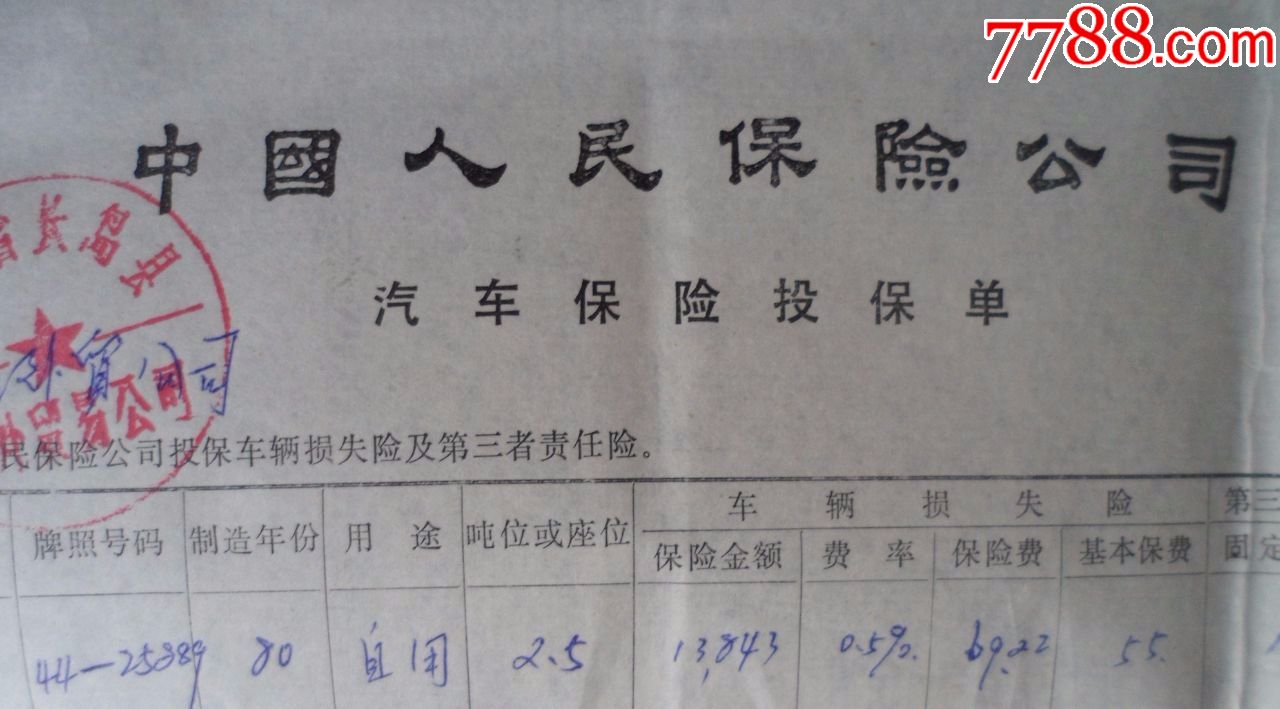 7788.com
中國人民保險公司
汽车保险投保单
县
外贸公司
贸易公司
民保险公司投保车辆损失险及第三者责任险。
牌照号码 制造年份 用途 吨位或座位 车辆损失险 第三
保险金额 费率 保险费 基本保费 固定
44-25889 80 自用 2.5 13,843 0.5% 69.22 55.